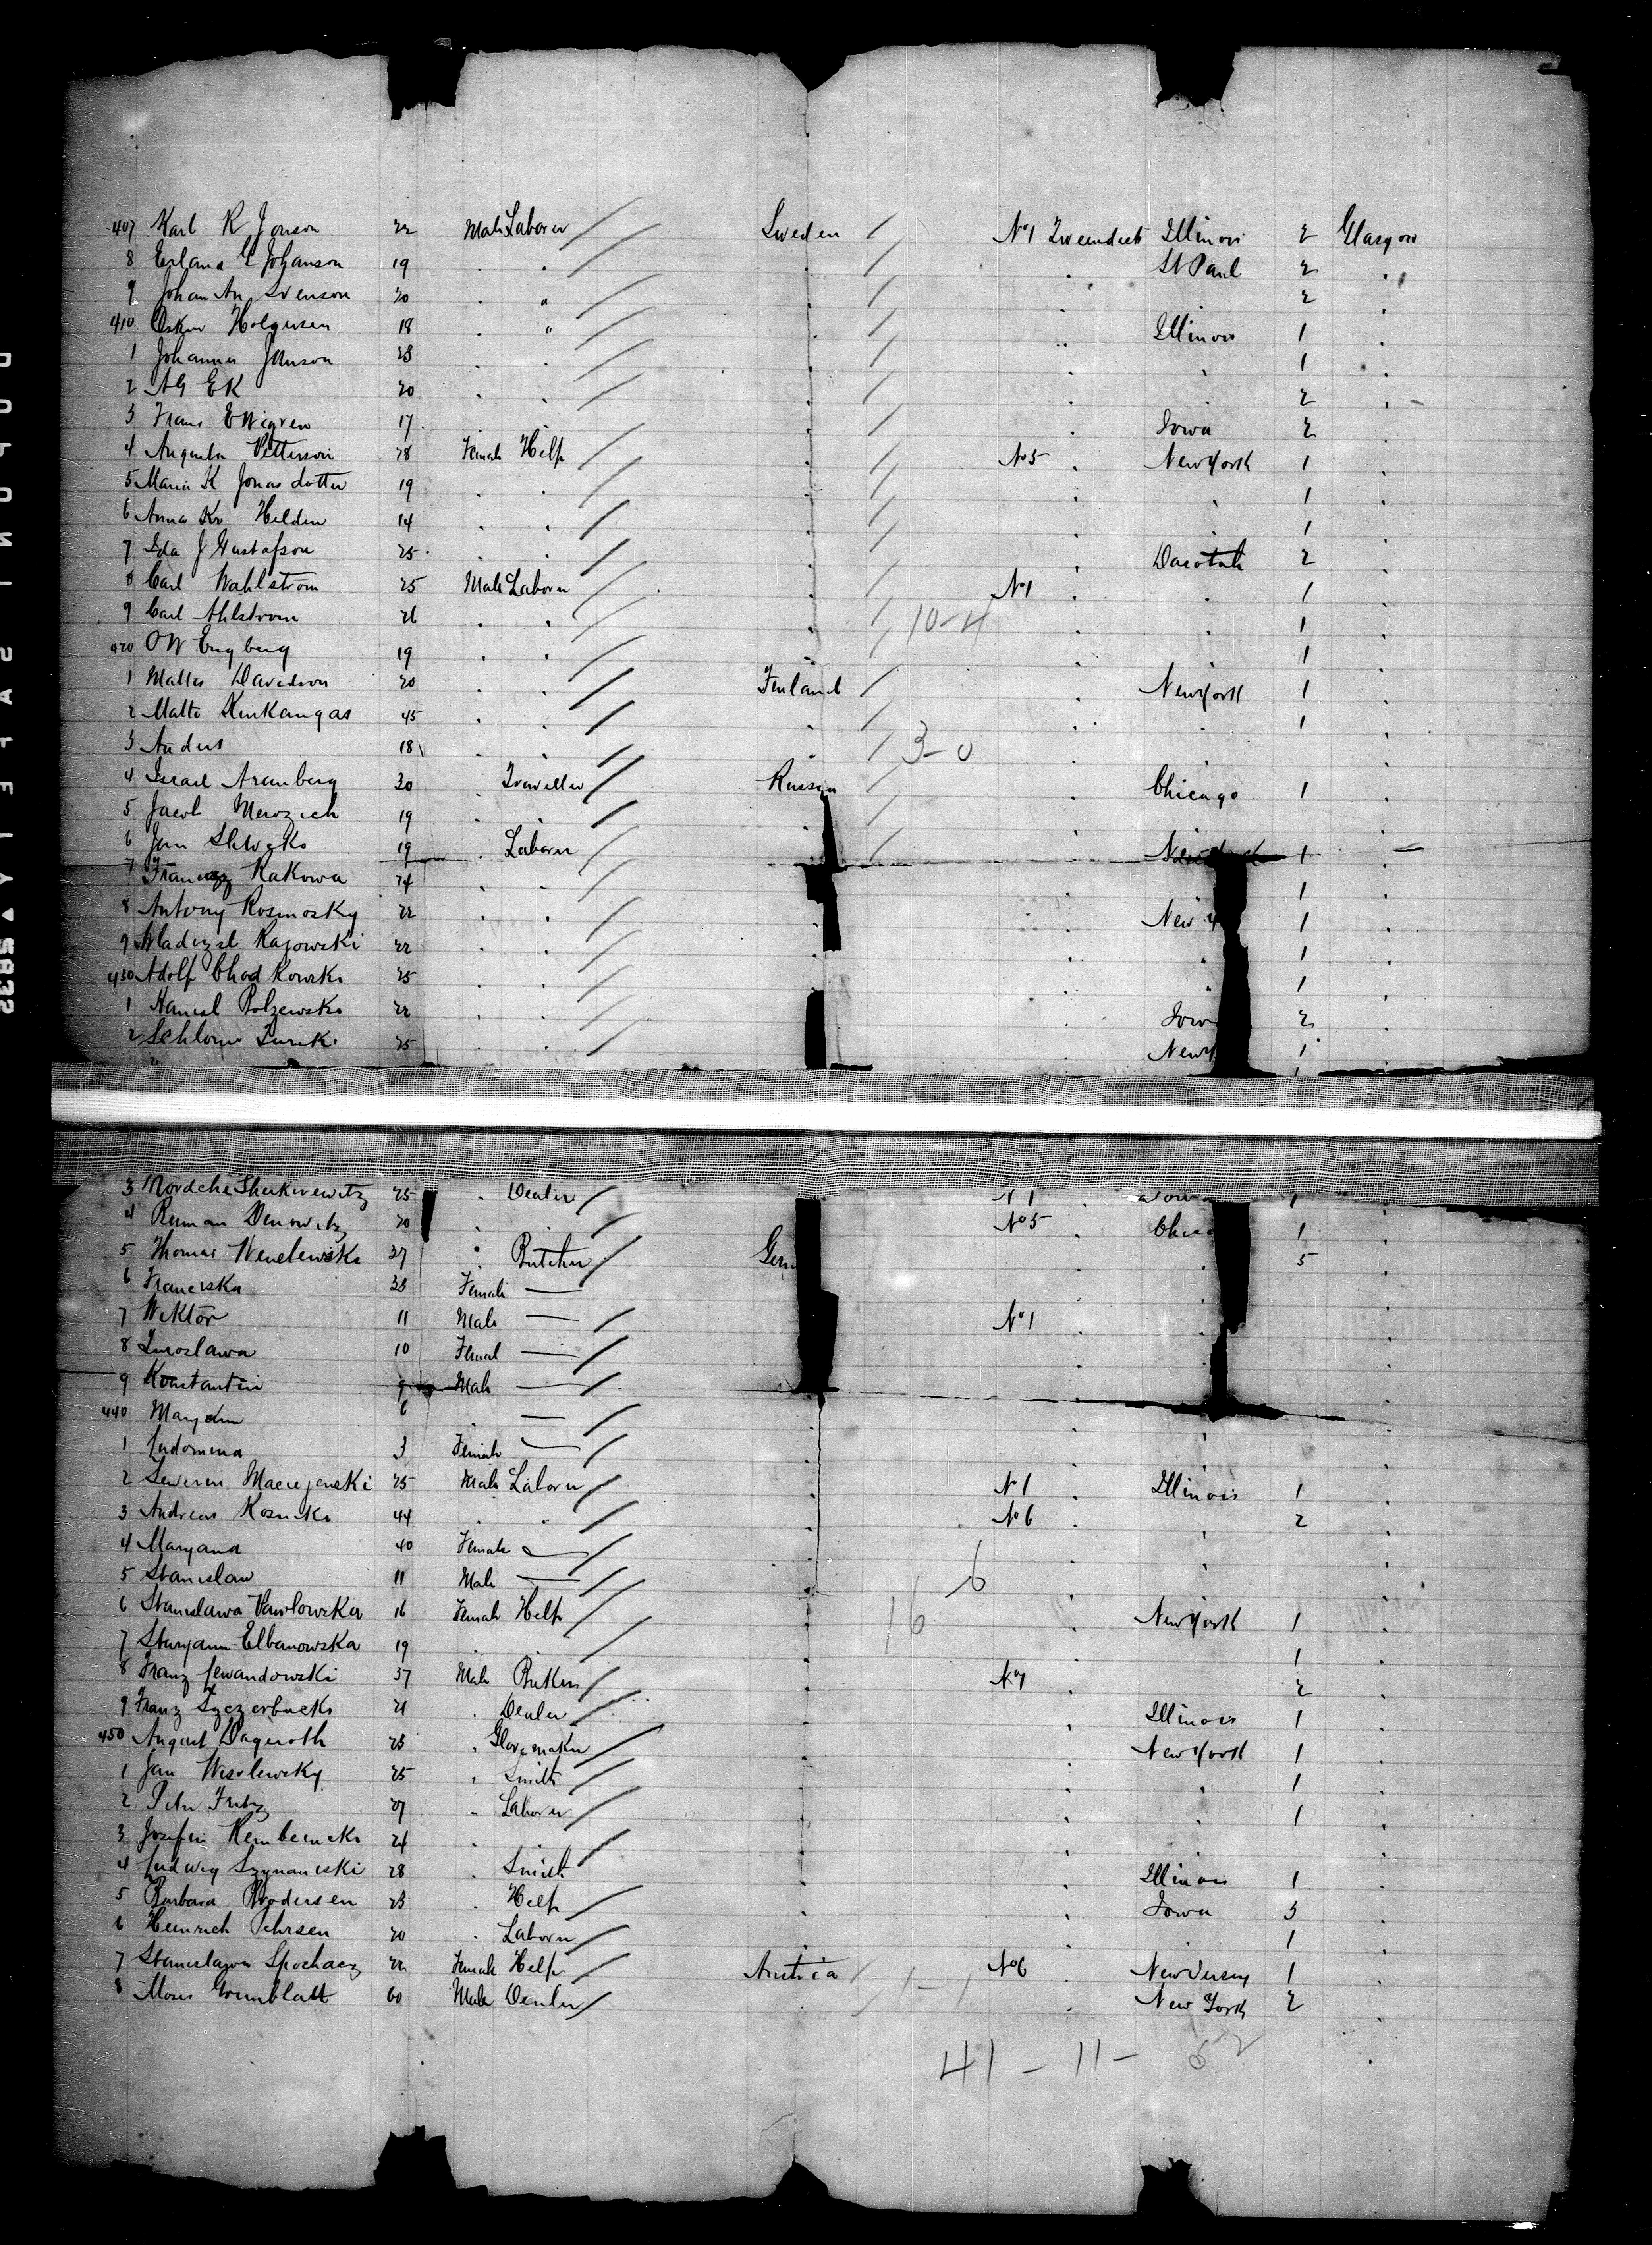 407 Karl R Jonson 22 Male Laborer Sweden No 1 Tweendeck Illinois 2 Glasgow
8 Erland G Johanson 19 " " St Paul 2
9 Johan An Svenson 20 " 2
410 Oskar Holgersen 18 " Illinois 1
1 Johannes Jonson 28 1
2 AG EK 20 2
3 Frans E Wigren 17 Iowa 2
4 Augusta Petterson 28 Female Help No 5 New York 1
5 Maria K Jonasdotter 19 1
6 Anna Kr Helden 14 1
7 Ida J Gustafson 25 Dacotah 2
8 Carl Wahlstrom 25 Male Laborer No 1 1
9 Carl Ahlstrom 26 10-4 1
420 OW Engberg 19 1
1 Matts Davidson 20 Finland New York 1
2 Matts 45 1
3 Anders 18 3-0
4 Israel Arenberg 30 Traveller Russia Chicago 1
5 Jacob 19
6 Jan 19 Laborer New York 1
7 Francisz Kakowa 24 1
8 Antony Rosmosky 22 New Y 1
9 Wladizsl Rajowski 22 1
430 Adolf Chodkowsko 25 1
1 Polzewsko 22 Iow 2
2 Schlome 25 New Y 1
3 Mordche 25 Dealer No 1 Iowa 1
4 20 No 5 Chica 1
5 Thomas Wendlewski 37 Butcher Germ 5
6 Franciska 33 Female —
7 Wiktor 11 Male — No 1
8 10 Female —
9 Konstantin 9 Male —
440 Maryann 6 —
1 3 Female —
2 Severin Maciejewski 25 Male Laborer No 1 Illinois 1
3 Andreas 44 No 6 2
4 Maryana 40 Female —
5 Stanislaw 11 Male — 6
6 Stanislawa Pawlowska 16 Female Help 16 New York 1
7 Elbanowska 19 1
8 Franz Lewandowski 37 Male No 1 2
9 Franz 21 Dealer Illinois 1
450 August Dageroth 23 Glovemaker New York 1
1 Jan Wisolewsky 25 Smith 1
2 Peter Fritz 27 Laborer 1
3 Josefin 24
4 Ludwig Szymanski 28 Smith Illinois 1
5 Barbara Brodersen 23 Help Iowa 3
6 Heinrich Jehrsen 20 Laborer 1
7 22 Female Help Austria 1-1 No 6 New Jersey 1
8 Moses Grünblatt 60 Male Dealer New York 2
41 - 11 - 52